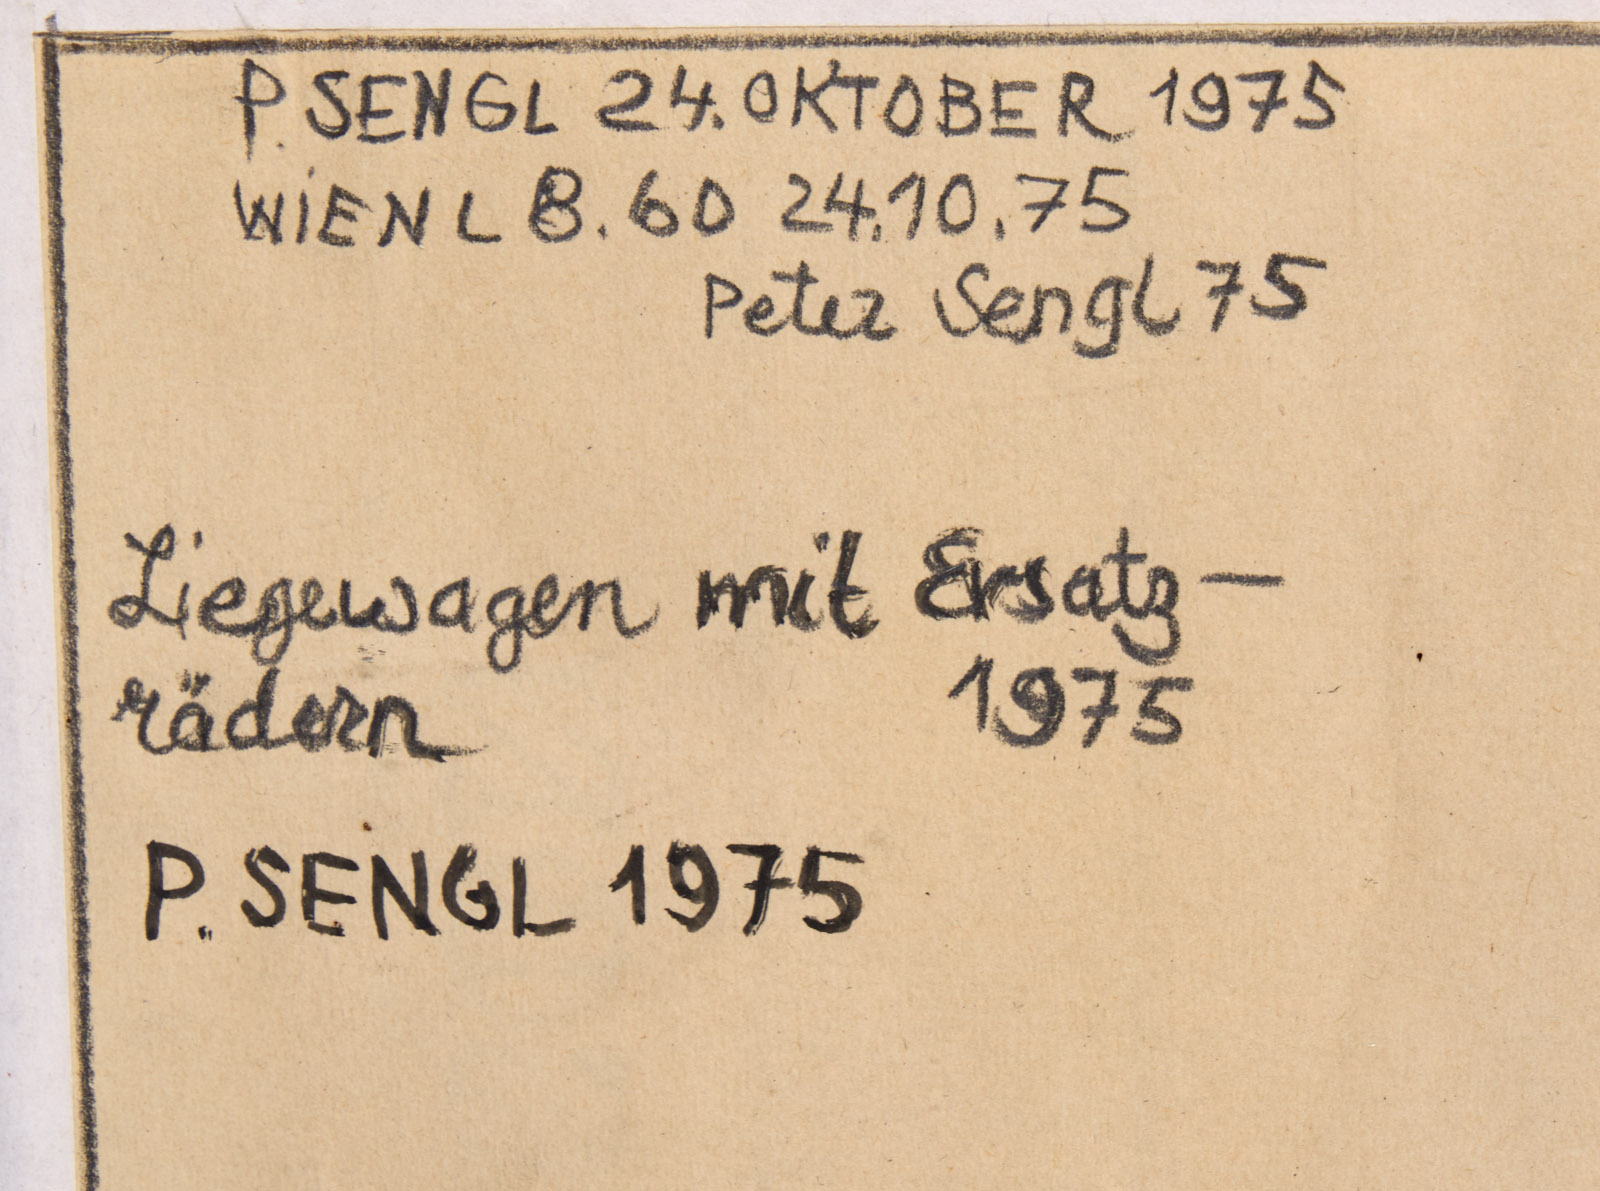 P. SENGL 24. OKTOBER 1975
WiEN L 8. 60 24.10.75
Peter Sengl 75
Liegewagen mit Ersatz-
rädern 1975
P. SENGL 1975